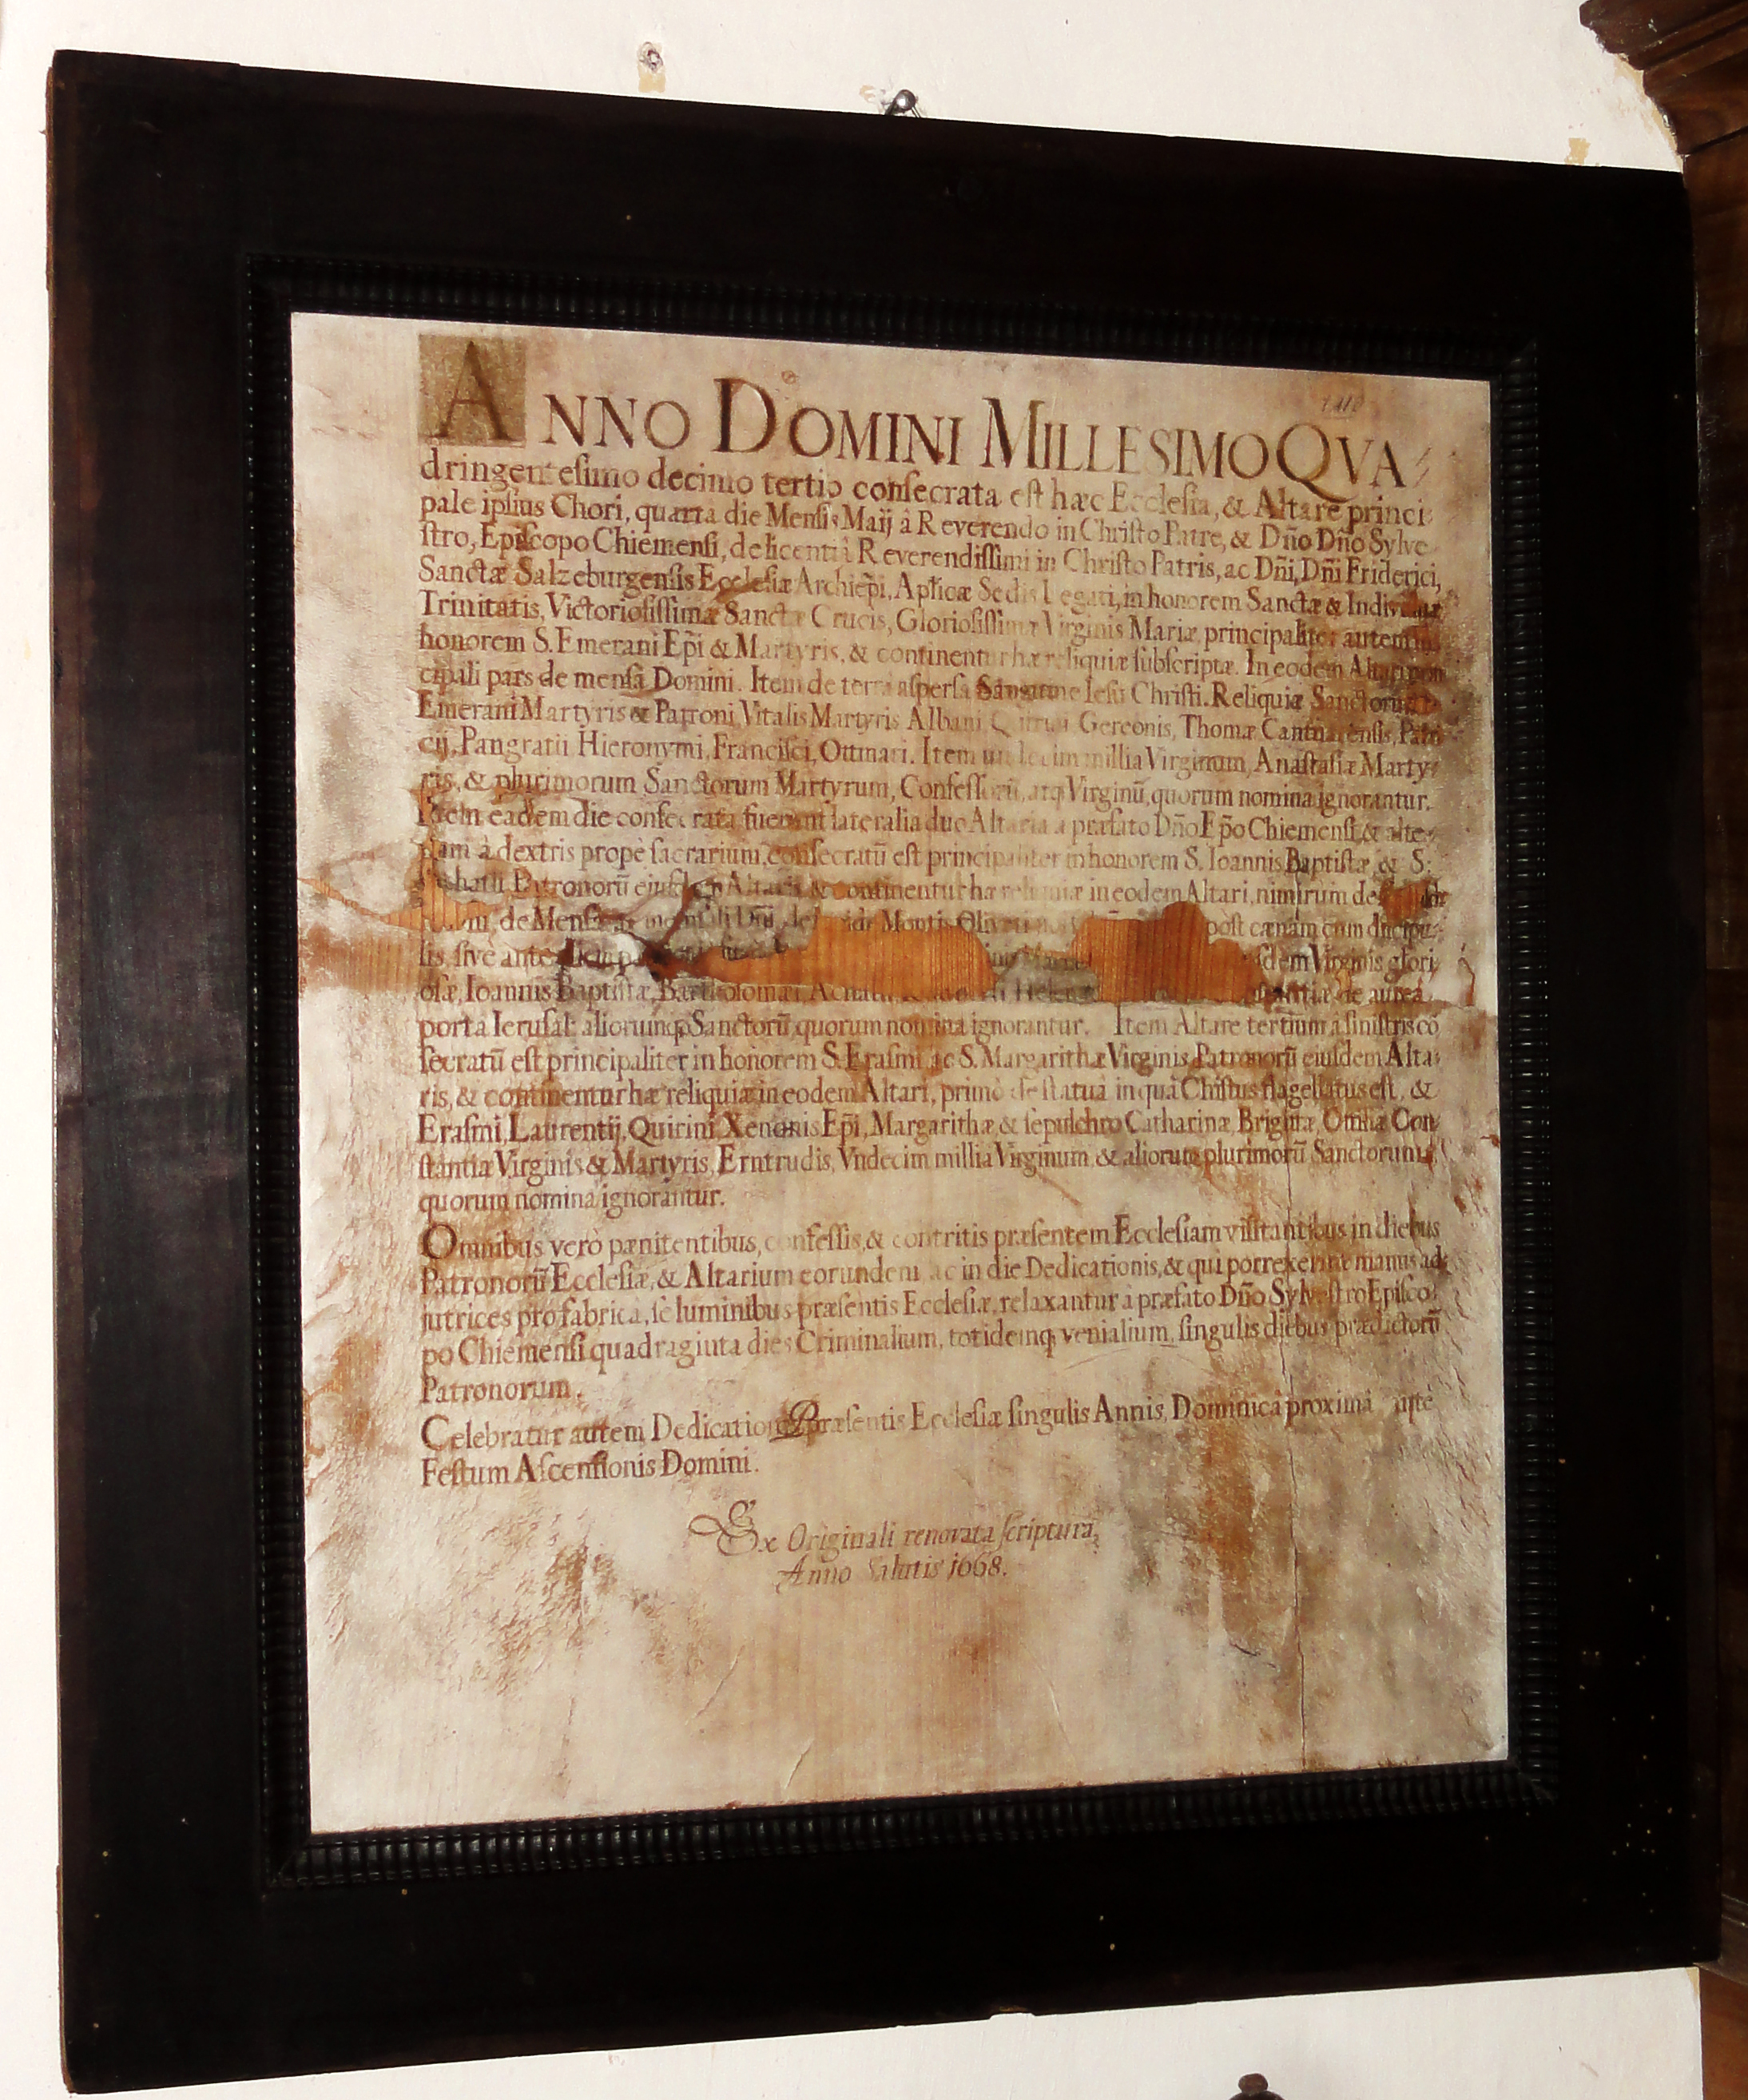 ANNO DOMINI MILLESIMO QVA⸗
dringentesimo decimo tertio consecrata est hæc Ecclesia, & Altare princi⸗
pale ipsius Chori, quarta die Mensis Maij â Reverendo in Christo Patre, & Dño Dño Sylve
stro, Episcopo Chiemensi, de licentiâ Reverendissimi in Christo Patris, ac Dñi, Dñi Friderici,
Sanctæ Salzeburgensis Ecclesiæ Archiep̃i, Apl̃icæ Sedis Legati, in honorem Sanctæ & Individuæ
Trinitatis, Victoriosissimæ Sanctæ Crucis, Gloriosissimæ Virginis Mariæ, principaliter autem in
honorem S. Emerani Ep̃i & Martyris, & continentur hæ reliquiæ subscriptæ. In eodem Altari prin
cipali pars de mensâ Domini. Item de terra aspersa Sanguine Iesu Christi. Reliquiæ Sanctorum
Emerani Martyris & Patroni, Vitalis Martyris Albani Gereonis, Thomæ Cantuariensis, Patri
cij, Pangratii Hieronymi, Francisci, Ottmari. Item undecim millia Virginum, Anastasiæ Marty⸗
ris, & plurimorum Sanctorum Martyrum, Confessorū, atq Virginū, quorum nomina ignorantur.
Item eadem die consecrata fuerunt lateralia duo Altaria a præfato Dño Ep̃o Chiemensi, & alte⸗
rum à dextris propè sacrarium, consecratū est principaliter in honorem S. Ioannis Baptistæ & S:
Patronorū eiusdem Altaris & continentur hæ reliquiæ in eodem Altari, nimirum de
de Mensa Dñi, de Montis Oliveti post cænam cum discipu⸗
lis, sivè ante Virginis glori
osæ, Ioannis Baptistæ, Bartholomæi, Achatii de aurea
porta Ierusal: aliorumq Sanctorū quorum nomina ignorantur. Item Altare tertium â sinistris cō
secratū est principaliter in honorem S. Erasmi ac S. Margarithæ Virginis Patronorū eiusdem Alta⸗
ris, & continentur hæ reliquiæ in eodem Altari, primò de statuâ in quâ Chistus flagellatus est, &
Erasmi, Laurentij, Quirini, Xenonis Ep̃i, Margarithæ & sepulchro Catharinæ, Brigittæ, Otiliæ Con
stantiæ Virginis & Martyris, Erntrudis, Vndecim millia Virginum, & aliorum plurimorū Sanctorum
quorum nomina ignorantur.
Omnibus verò pænitentibus, confessis, & contritis præsentem Ecclesiam visitantibus in diebus
Patronorū Ecclesiæ, & Altarium eorundem ac in die Dedicationis, & qui porrexerint manus ad⸗
jutrices pro fabrica, se luminibus præsentis Ecclesiæ, relaxantur à præfato Dño Sylvestro Episco⸗
po Chiemensi quadraginta dies Criminalium, totidemq venialium, singulis diebus prædictorū
Patronorum.
Celebratur autem Dedicatio Præsentis Ecclesiæ singulis Annis, Dominicâ proximâ ante
Festum Ascensionis Domini.
Ex Originali renovata scriptura,
Anno Salutis 1668.